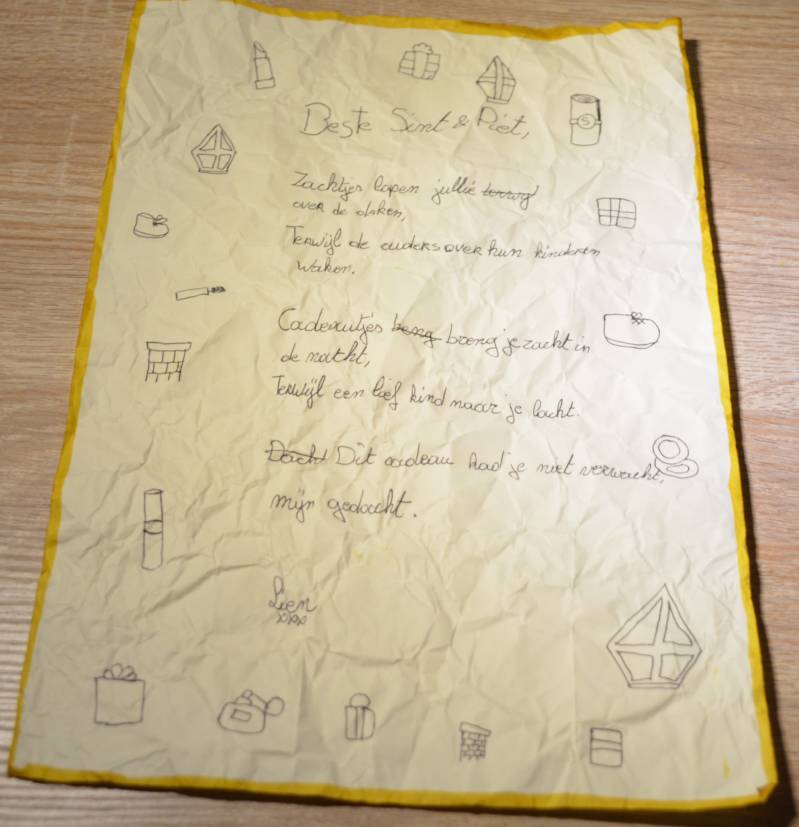 Beste Sint & Piet,
Zachtjes lopen jullie terwyl
over de daken,
Terwijl de ouders over hun kinderen
waken.
Cadeautjes beng breng je zacht in
de nacht,
Terwijl een lief kind naar je lacht.
Dacht Dit cadeau had je niet verwacht,
mijn gedacht.
Lien
xxx
S